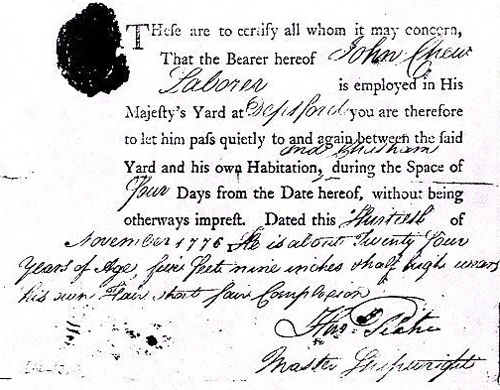 THese are to certify all whom it may concern,
That the Bearer hereof John Chew
Laborer is employed in His
Majesty's Yard at Deptford you are therefore
to let him pass quietly to and again between the said
and Chatham
Yard and his own Habitation, during the Space of
Four Days from the Date hereof, without being
otherways imprest. Dated this Thirtieth of
November 1776 He is about Twenty Four
Years of Age, five feet nine inches & half high wears
his own Hair short fair Complexion
Master Shipwright